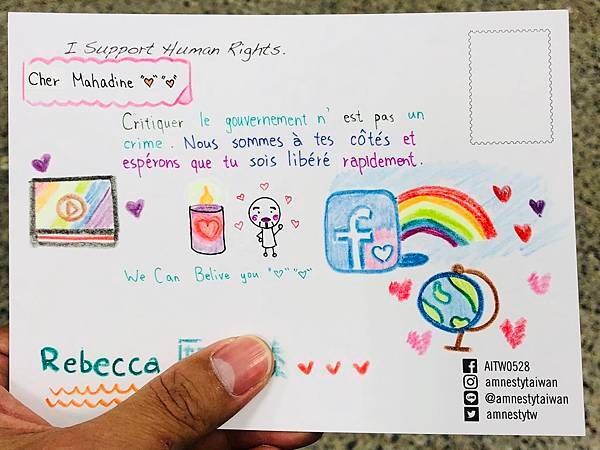 I Support Human Rights.
Cher Mahadine
Critiquer le gouvernement n' est pas un
crime. Nous sommes à tes côtés et
espérons que tu sois libéré rapidement.
f
We Can Belive you
Rebecca
AITW0528
amnestytaiwan
@amnestytaiwan
amnestytw